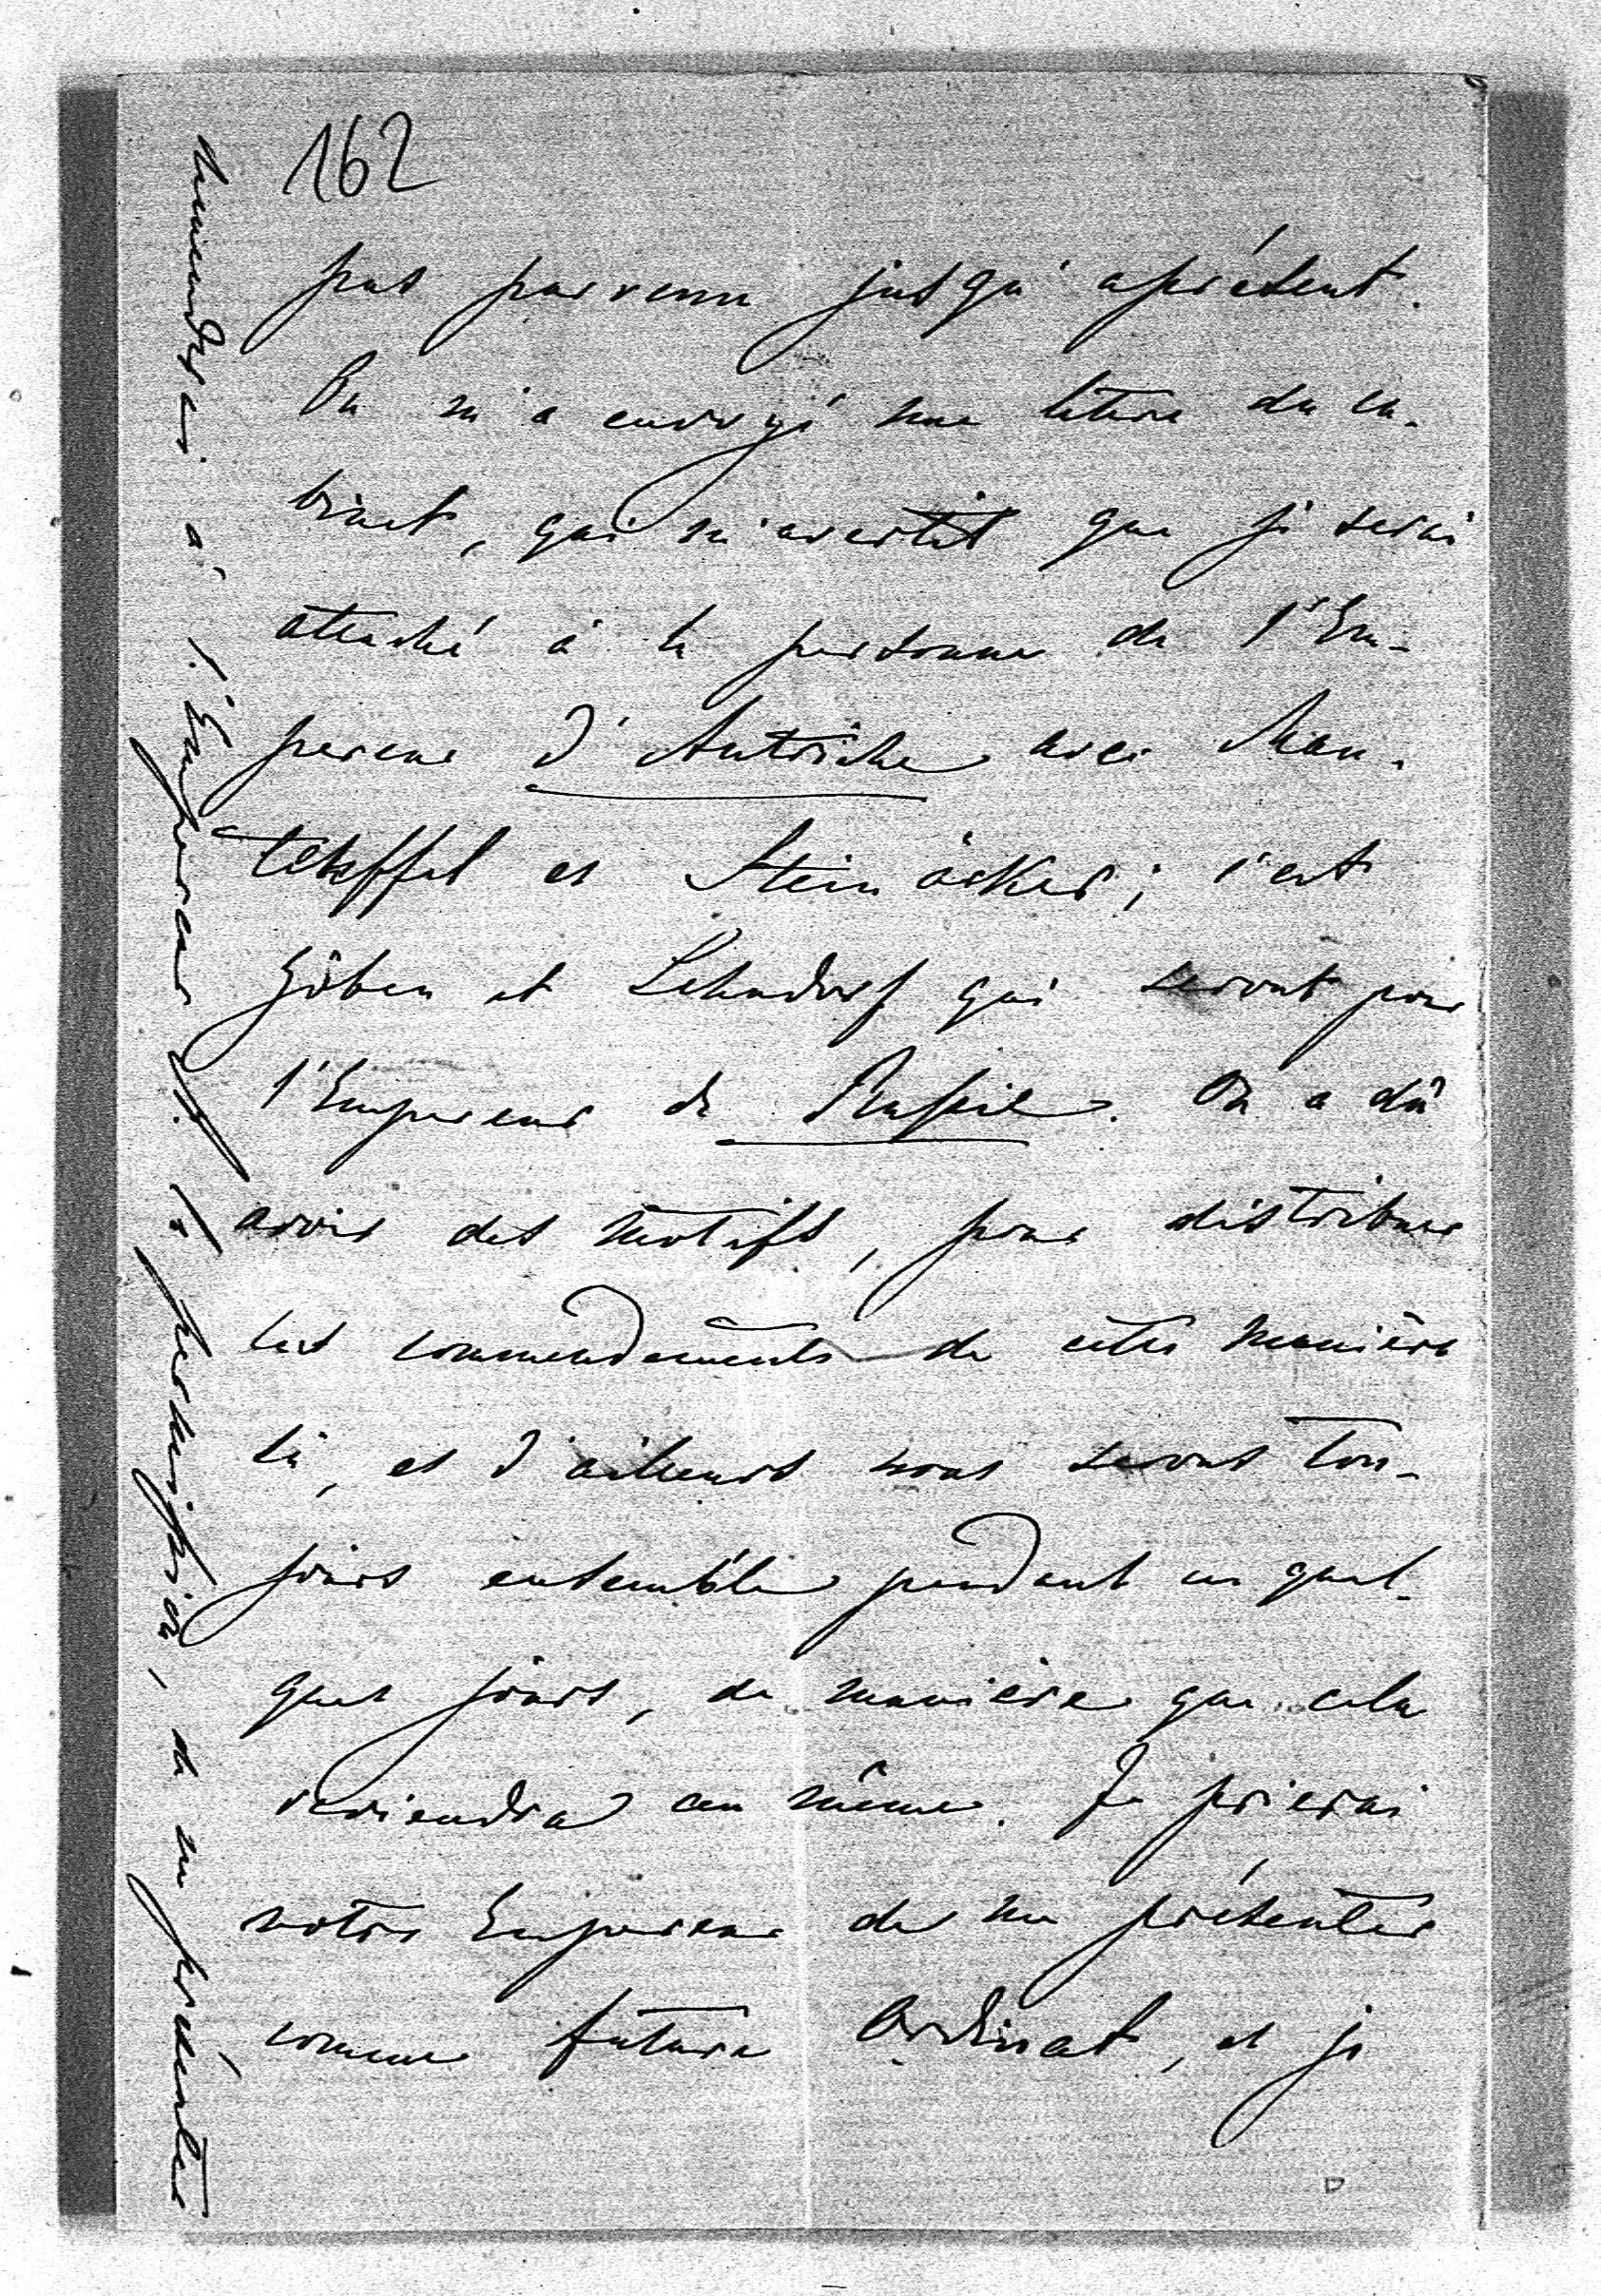 162
pas parvenu jusqu'aprésent.
On m'a envoyé une lettre du ca-
binet, qui m'avertit que je serai
attaché à la personne de l'Em-
pereur d'Autriche avec Man-
teuffel et Steinäcker; c'est
Göben et Lehndorf qui seront pour
l'Empereur de Russie. On a dû
avoir des motifs, pour distribuer
les commendements de cette manière
là, et d'ailleurs nous serons tou-
jours ensemble pendant ces quel-
ques jours, de manière que cela
reviendra au même. Je prierai
notre Empereur de me présenter
comme future Ordinat, et je
demanderai à l'Empereur la permission, de me présenter